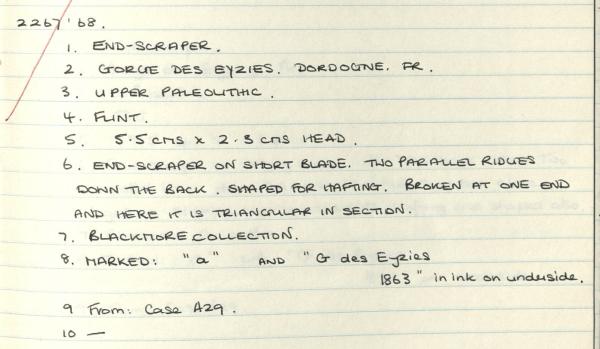 2267'68.
1. END-SCRAPER.
2. GORGE DES EYZIES. DORDOGNE. FR.
3. UPPER PALEOLITHIC.
4. FLINT.
5. 5.5 cms x 2.3 cms HEAD.
6. END-SCRAPER ON SHORT BLADE. TWO PARALLEL RIDGES
DOWN THE BACK. SHAPED FOR HAFTING. BROKEN AT ONE END
AND HERE IT IS TRIANGULAR IN SECTION.
7. BLACKMORE COLLECTION.
8. MARKED: "a" AND "G des Eyzies
1863" in ink on underside.
9 From: Case A29.
10 —